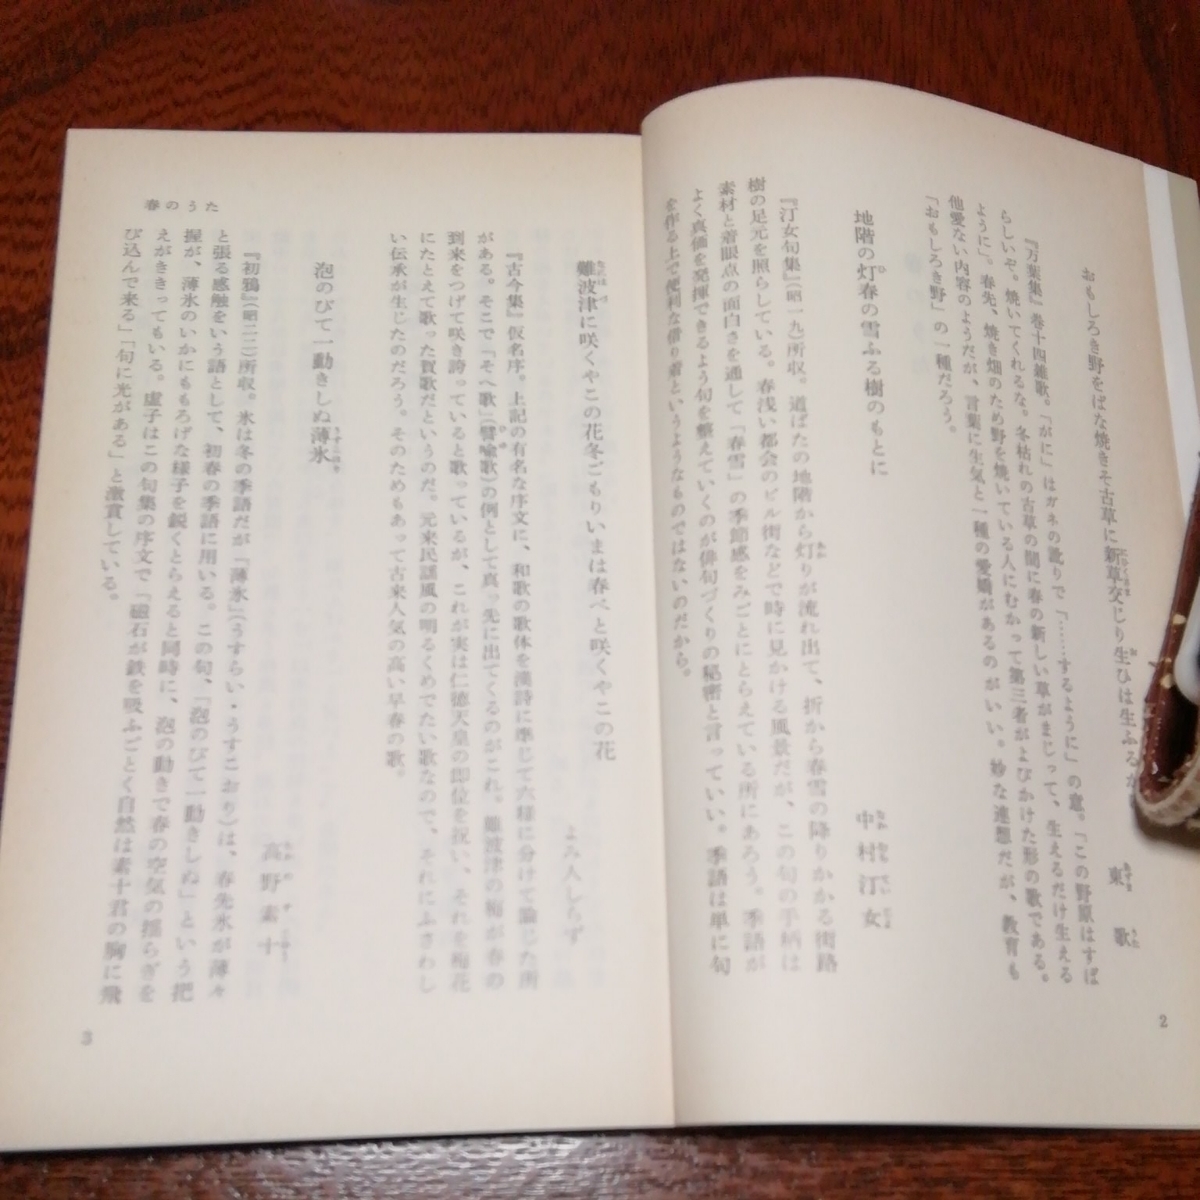 おもしろき野をばな焼きそ古草に新草交じり生ひは生ふるが
東歌
『万葉集』巻十四雑歌。「がに」はガネの訛りで「……するように」の意。「この野原はすば
らしいや。焼いてくれるな。冬枯れの古草の間に春の新しい草がまじって、生えるだけ生える
ように」。春先、焼き畑のため野を焼いている人にむかって第三者がよびかけた形の歌である。
他愛ない内容のようだが、言葉に生気と一種の愛嬌があるのがいい。妙な連想だが、教育も
「おもしろき野」の一種だろう。
地階の灯春の雪ふる樹のもとに
中村汀女
『汀女句集』(昭一九)所収。道ばたの地階から灯りが流れ出て、折から春雪の降りかかる街路
樹の足元を照らしている。春浅い都会のビル街などで時に見かける風景だが、この句の手柄は
素材と着眼点の面白さを通して「春雪」の季節感をみごとにとらえている所にあろう。季語が
よく真価を発揮できるよう句を整えていくのが俳句づくりの秘密と言っていい。季語は単に句
を作る上で便利な借り着というようなものではないのだから。
2
難波津に咲くやこの花冬ごもりいまは春べと咲くやこの花
よみ人しらず
『古今集』仮名序。上記の有名な序文に、和歌の歌体を漢詩に準じて六様に分けて論じた所
がある。そこで「そへ歌」(譬喩歌)の例として真っ先に出てくるのがこれ。難波津の梅が春の
到来をつげて咲き誇っていると歌っているが、これが実は仁徳天皇の即位を祝い、それを梅花
にたとえて歌った賀歌だというのだ。元来民謡風の明るくめでたい歌なので、それにふさわし
い伝承が生じたのだろう。そのためもあって古来人気の高い早春の歌。
泡のびて一動きしぬ薄氷
高野素十
『初鴉』(昭二二)所収。氷は冬の季語だが「薄氷」(うすらい・うすごおり)は、春先氷が薄々
と張る感触をいう語として、初春の季語に用いる。この句、「泡のびて一動きしぬ」という把
握が、薄氷のいかにももろげな様子を鋭くとらえると同時に、泡の動きで春の空気の揺らぎを
えがききってもいる。虚子はこの句集の序文で「磁石が鉄を吸ふごとく自然は素十君の胸に飛
び込んで来る」「句に光がある」と激賞している。
春のうた
3